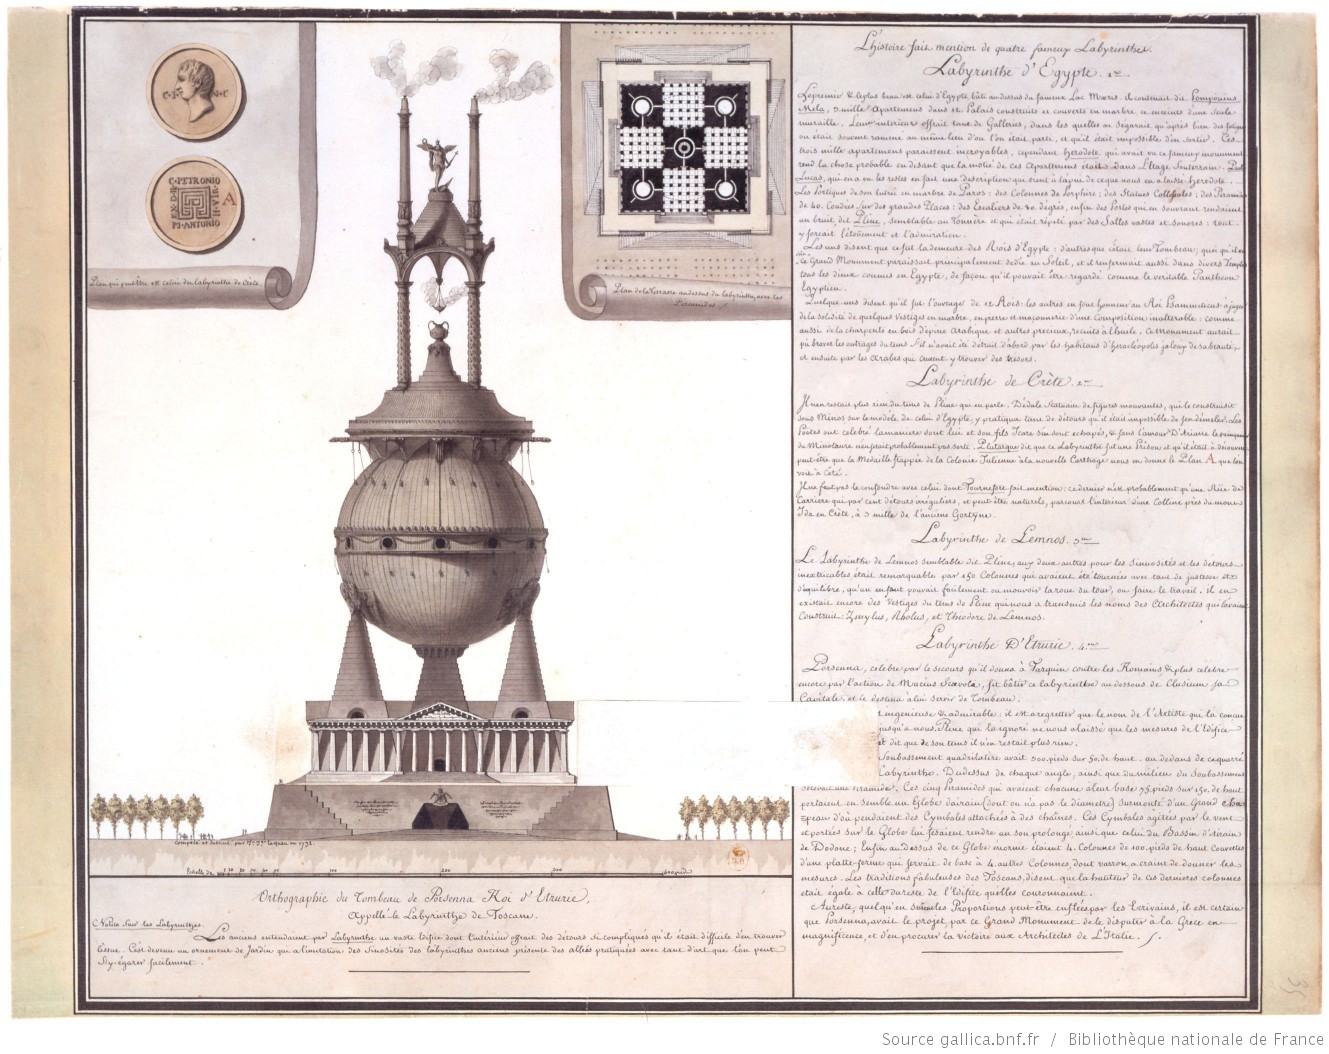 C·I·N·C
C·PETRONIO
EX·D·D
II·VIR
M·ANTONIO
A
Plan qui peut être est celui du labyrinthe de Crète.
Plan de la Terrasse au dessus du labyrinthe, avec les
Piramides.
Composé et dessiné par
Echelle de
100
200
300 pieds
Orthographie du Tombeau de Porsenna Roi d'Etrurie,
Appellé le Labyrinthe de Toscane.
Notice sur les Labyrinthes.
Les anciens entendaient par Labyrinthe un vaste Edifice dont l'intérieur offrait des détours si compliqués qu'il était difficile d'en trouver
l'issue. C'est devenu un ornement de Jardin qui a l'imitation des sinuosités des labyrinthes anciens présente des allées pratiquées avec tant d'art que l'on peut
s'y égarer facilement.
L'histoire fait mention de quatre fameux Labyrinthes.
Labyrinthe d'Egypte. 1er
Le premier & le plus beau est celui d'Egypte, bâti au dessus du fameux Lac Mœris. il contenait dit Pomponius
Mela, 3 mille Apartemens dans 12 Palais construits et couverts en marbre, et enceints d'une seule
muraille. L'interieur offrait tant de Galleries, dans les quelles on s'égarait qu'après bien des fatigues
on était souvent ramené au même lieu d'ou l'on était parti, et qu'il était impossible d'en sortir. Ces
trois mille apartemens paraissent incroyables, cependant Herodote, qui avait vu ce fameux monument
rend la chose probable en disant que la moitié de ces Apartemens était dans l'Etage Souterrain: Paul
Lucas, qui en a vu les restes en fait une description qui vient à l'apui de ce que nous en a laissé Herodote.
Les Portiques de son entrée en marbre de Paros: des Colonnes de Porphire; des Statues Collossales; des Piramides
de 40. Coudées sur des grandes Places: des Escaliers de 90 dégrés, enfin des Portes qui en s'ouvrant rendaient
un bruit, dit Pline, semblable au Tonnère et qui était répété par des Salles vastes et sonores: tout
y forçait l'étonement et l'admiration.
Les uns disent que ce fut la demeure des Rois d'Egypte: d'autres que c'était leur Tombeau; quoi qu'il en
soit ce Grand Monument paraissait principalement dédié au Soleil, et il renfermait aussi dans divers Temples
tous les dieux connus en Egypte, de façon qu'il pouvait être regardé comme le veritable Pantheon
Egyptien.
Quelques uns disent qu'il fut l'ouvrage de 12 Rois: les autres en font honneur au Roi Psammiticus à juger
de la solidité de quelques Vestiges en marbre, en pierre et maçonnerie d'une composition inalterable: comme
aussi de la charpente en bois d'épine Arabique et autres precieux, recuits à l'huile. Ce Monument aurait
pû braver les outrages du tems s'il n'avait été détruit d'abord par les habitans d'Heracléopolis jaloux de sa beauté,
et ensuite par les Arabes qui crurent y trouver des trésors.
Labyrinthe de Crète. 2me
Il n'en restait plus rien du tems de Pline qui en parle. Dédale Statuaire de figures mouvantes, qui le construisit
sous Minos sur le modèle de celui d'Egypte, y pratiqua tant de détours qu'il était impossible de s'en démeler. Les
Poetes ont célébré la maniere dont lui et son fils Icare s'en sont echapés, & sans l'amour d'Ariane le vainqueur
du Minotaure n'en serait probablement pas sorti. Plutarque dit que ce Labyrinthe fut une Prison et qu'il était à découvert
peut-être que la Medaille frappée de la Colonie Julienne à la nouvelle Carthage nous en donne le Plan A que l'on
voit à côté.
Il ne faut pas le confondre avec celui dont Tournefort fait mention: ce dernier n'est probablement qu'une Râie de
Carriere qui par cent détours irréguliers, et peut être naturels, parcourt l'interieur d'une Colline près du mont
Ida en Crète, à 3 mille de l'ancienne Gortyne.
Labyrinthe de Lemnos. 3me
Le Labyrinthe de Lemnos semblable dit Pline, aux deux autres pour les sinuosités et les détours
inextricables, était remarquable par 150 Colonnes qui avaient été tournées avec tant de justesse et
d'équilibre, qu'un enfant pouvait facilement en mouvoir la roue du tour, ou faire le travail. il en
existait encore des Vestiges du tems de Pline qui nous a transmis les noms des Architectes qui l'avaient
Construit: Zmylus, Rholus, et Théodore de Lemnos.
Labyrinthe D'Etrurie. 4me
Porsenna, celebre par le secours qu'il donna à Tarquin contre les Romains & plus célebre
encore par l'action de Mucius Scævola, fit bâtir ce labyrinthe au dessous de Clusium sa
Capitale, et le destina à lui servir de Tombeau.
t ingenieuse & admirable: il est à regretter que le nom de l'Artiste qui la conçue
jusqu'à nous. Pline qui l'ignoré ne nous a laissé que les mesures de l'Edifice
et dit que de son tems il n'en restait plus rien.
Soubassement quadrilatère avait 300. pieds sur 50. de haut. au dedans de ce quarré
Labyrinthe. Du dessus de chaque angle, ainsi que du milieu du Soubassement
s'élevait une Piramide. Ces cinq Piramides qui avaient chacune à leur base 75. pieds sur 150. de haut
portaient ensemble un Globe d'airain (dont on n'a pas le diametre) surmonté d'un Grand Cha-
peau d'où pendaient des Cymbales attachées à des chaînes. Ces Cymbales agitées par le vent
et portées sur le Globe lui fesaient rendre un son prolongé ainsi que celui du Bassin d'airain
de Dodone; Enfin au Dessus de ce Globe enorme étaient 4. Colonnes de 100. pieds de haut couvertes
d'une platte-forme qui servait de base à 4. autres Colonnes, dont varron a craint de donner les
mesures. Les traditions fabuleuses des Toscans, disent que la hauteur de ces dernieres colonnes
était égale à celle du reste de l'Edifice qu'elles couronnaient.
Au reste, quelqu'en soient les Proportions peut-être enflées par les Ecrivains, il est certain
que Porsenna, avait le projet, par ce Grand Monument de le disputer à la Grèce en
magnificence, et d'en procurer la victoire aux Architectes de l'Italie.
Source gallica.bnf.fr / Bibliothèque nationale de France